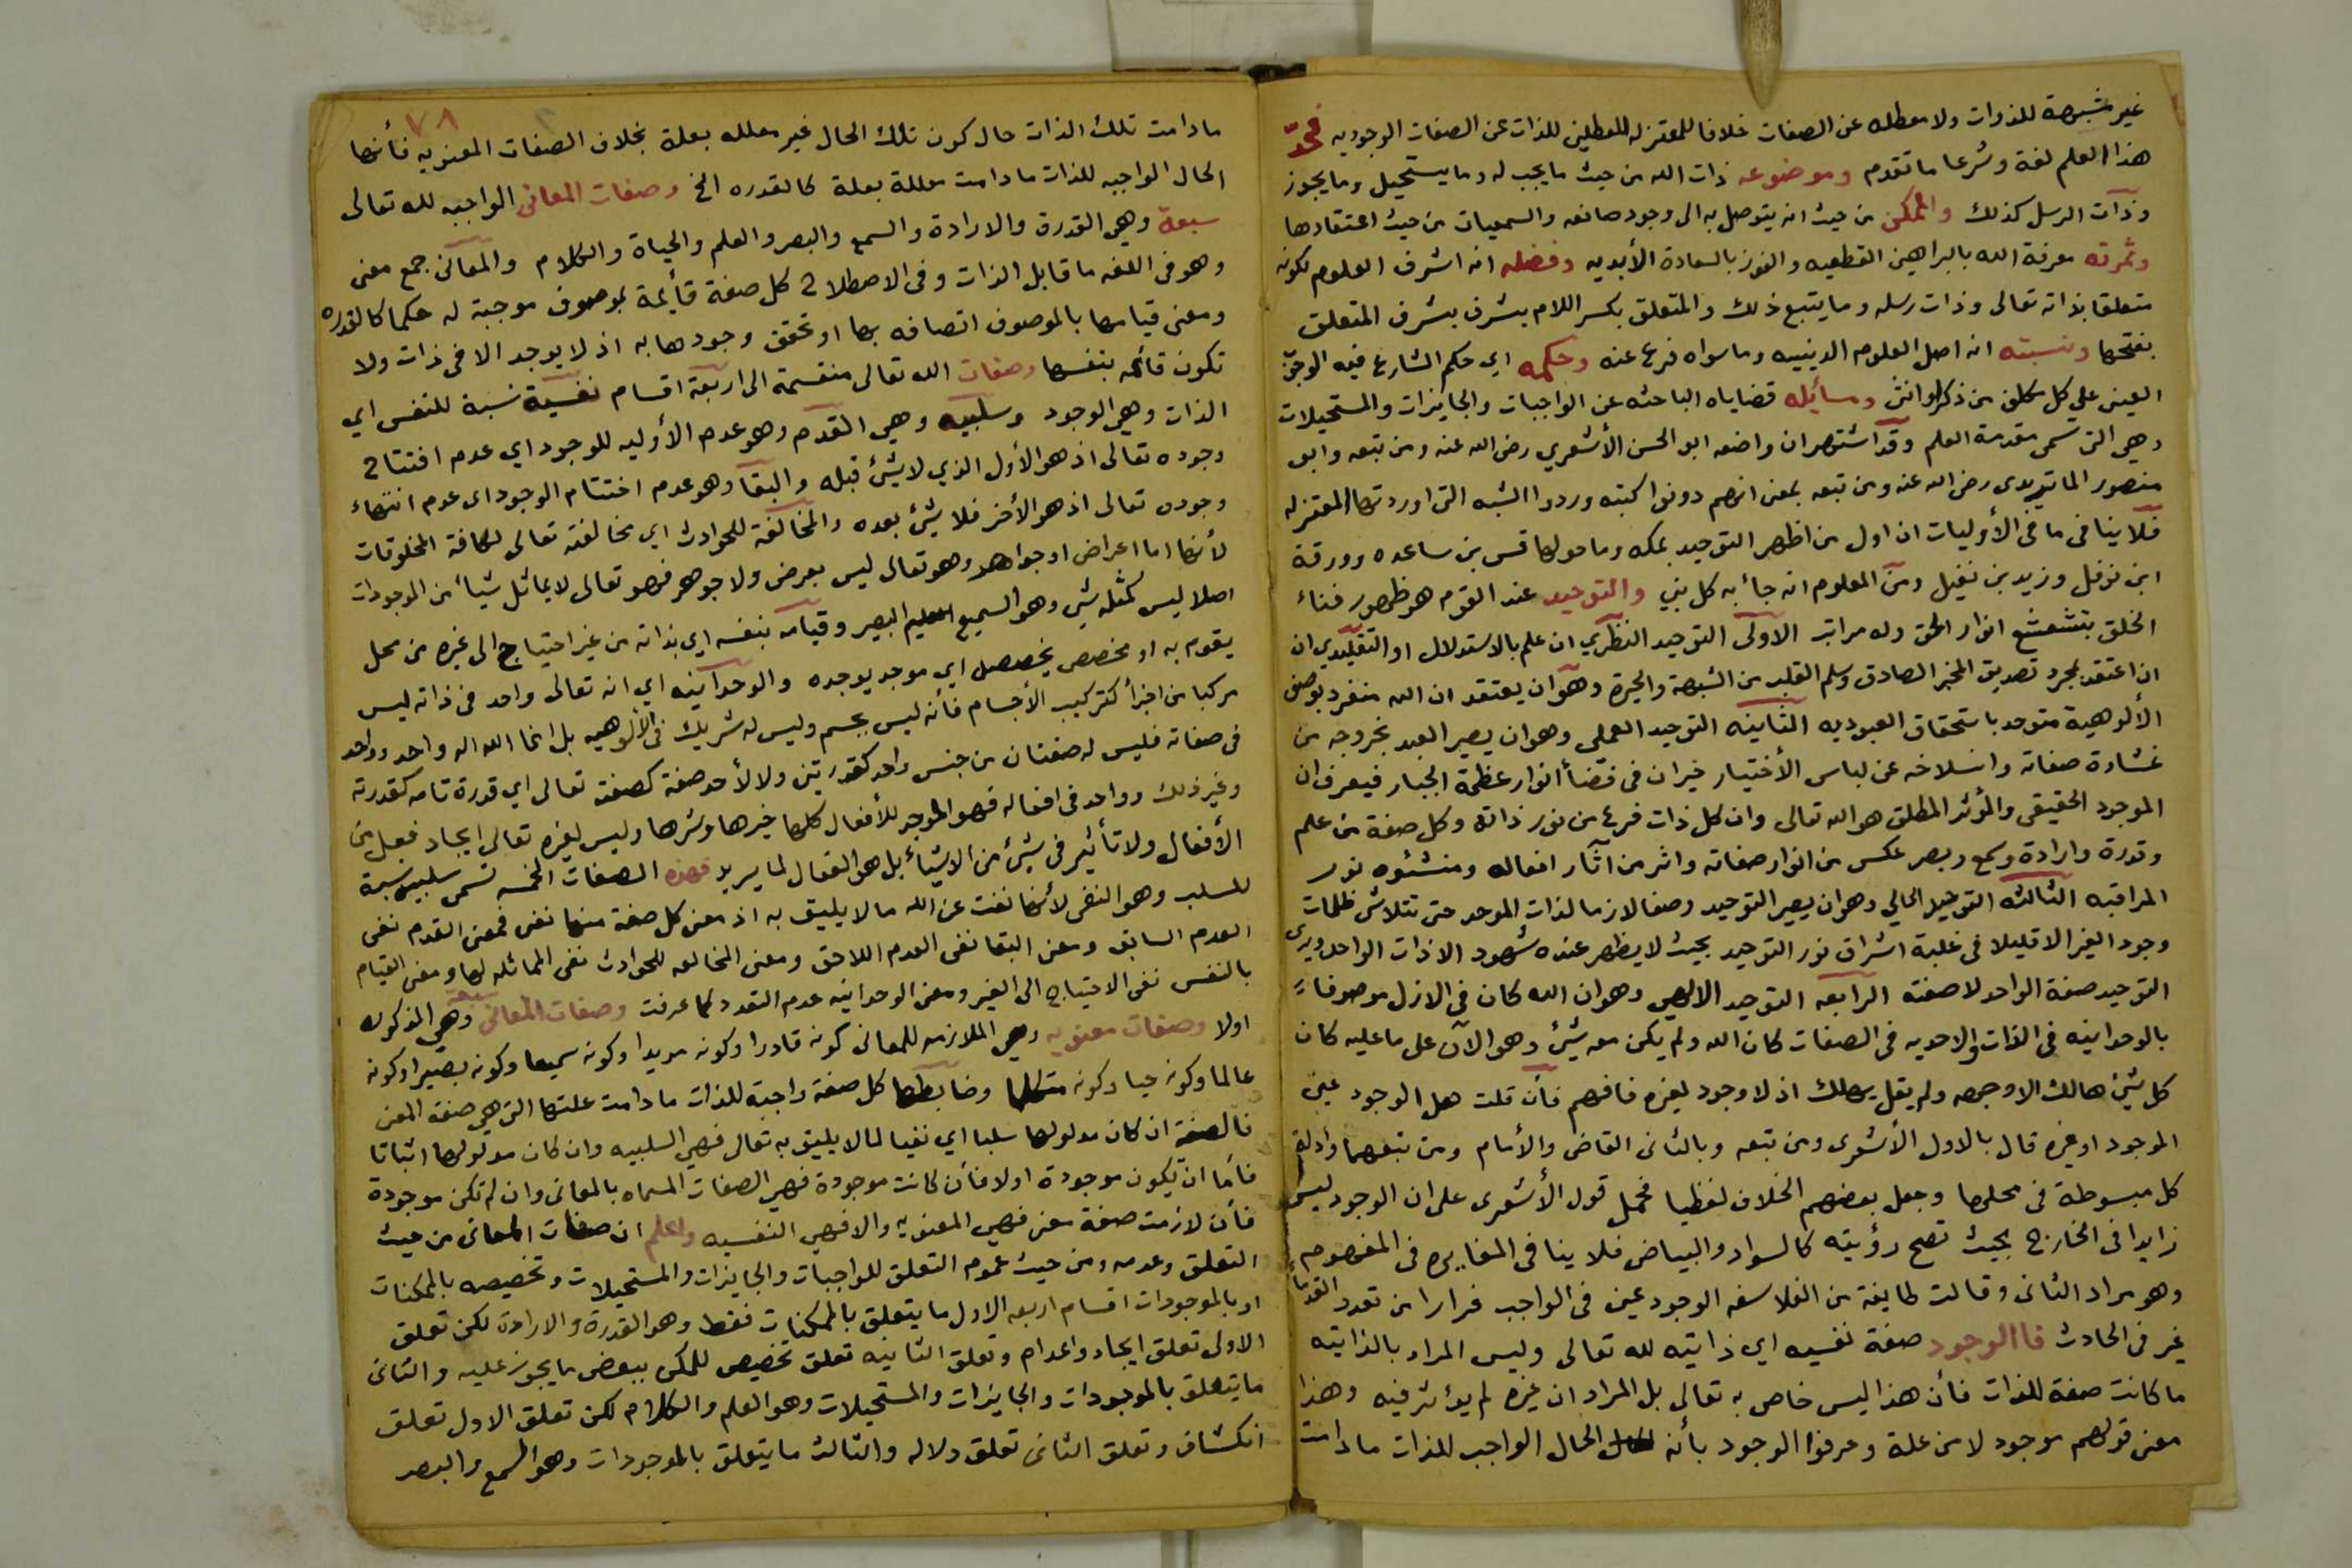 غير مشبهة للذوات ولا معطله عن الصفات خلافا للمعتزله المعطلين للذات عن الصفات الوجوديه فحدّ
هذا العلم لغة وشرعا ما تقدم وموضوعه ذات الله من حيث ما يجب له وما يستحيل وما يجوز
وذات الرسل كذلك والممكن من حيث انه يتوصل به الى وجود صانعه والسمعيات من حيث اعتقادها
وثمرته معرفة الله بالبراهين القطعيه والفوز بالسعادة الأبديه وفضله انه اشرف العلوم لكونه
متعلقا بذاته تعالى وذات رسله وما يتبع ذلك والمتعلق بكسر اللام يشرف بشرف المتعلق
بفتحها ونسبته انه اصل العلوم الدينييه وما سواه فرع عنه وحكمه اي حكم الشارع فيه الوجوب
العينى على كل مكلف من ذكر او انثى ومسائله قضاياه الباحثه عن الواجبات والجايزات والمستحيلات
وهي التى تسمى مقدمة العلم وقد اشتهر ان واضعه ابو الحسن الأشعري رضى الله عنه ومن تبعه وابو
منصور الماتريدى رضى الله عنه ومن تبعه بمعنى انهم دونوا كتبه وردوا الشبه التى اوردتها المعتزله
فلا ينافى ما فى الأوليات ان اول من اظهر التوحيد بمكه وما حولها قس بن ساعده وورقة
ابن نوفل وزيد بن نفيل ومن المعلوم انه جأ به كل نبي والتوحيد عند القوم هو ظهور فناء
الخلق بتشعشع انوار الحق وله مراتب الاولى التوحيد النظري ان علم بالاستدلال او التقليدي ان
ان اعتقد بمجرد تصديق المخبر الصادق وسلم القلب من الشبهة والحيرة وهو ان يعتقد ان الله منفرد بوصف
الألوهية متوحد باستحقاق العبوديه الثانيه التوحيد العملى وهو ان يصير العبد بخروجه من
غشاوة صفاته وانسلاخه عن لباس الأختيار حيران فى فضأ انوار عظمة الجبار فيعرف ان
الموجود الحقيقى والمؤثر المطلق هو الله تعالى وان كل ذات فرع من نور ذاته وكل صفة من علم
وقدرة وارادة وسمع وبصر عكس من انوار صفاته واثر من اثار افعاله ومنشئوه نور
المراقبه الثالثه التوحيد الحالي وهو ان يصير التوحيد وصفا لازما لذات الموحد حتى تتلاشى ظلمات
وجود الغير الا قليلا فى غلبة اشراق نور التوحيد بحيث لا يظهر عنده شهود الا ذات الواحد ويرى
التوحيد صفة الواحد لا صفته الرابعه التوحيد الالهي وهو ان الله كان فى الازل موصوفا
بالوحدانيه فى الذات والاحديه فى الصفات كان الله ولم يكن معه شئ وهو الآن على ما عليه كان
كل شئ هالك الا وجهه ولم يقل يهلك اذ لا وجود لغيره فافهم فأن قلت هل الوجود عين
الموجود او غيره قال بالاول الأشعرى ومن تبعه وبالثانى القاضى والأمام ومن تبعهما وادلة
كل مبسوطة فى محلها وجعل بعضهم الخلاف لفظيا فحمل قول الأشعرى على ان الوجود ليس
زايدا فى الخارج بحيث تصح رؤيته كالسواد والبياض فلا ينافى المغايره فى المفهوم
وهو مراد الثانى وقالت طايفة من الفلاسفه الوجود عين فى الواجب فرارا من تعدد القدمأ
غير فى الحادث فاالوجود صفة نفسيه اي ذاتيته لله تعالى وليس المراد بالذاتيته
ما كانت صفة للذات فأن هذا ليس خاص به تعالى بل المراد ان غيره لم يؤثر فيه وهذا
معنى قولهم موجود لا من علة وعرفوا الوجود بأنه الحال الواجب للذات ما دامت
٧٨
مادامت تلك الذات حال كون تلك الحال غير معلله بعلة بخلاف الصفات المعنويه فأنها
الحال الواجبه للذات مادامت معللة بعلة كالقدره الخ وصفات المعانى الواجبه لله تعالى
سبعة وهي القدرة والارادة والسمع والبصر والعلم والحياة والكلام والمعانى جمع معنى
وهو فى اللغه ما قابل الذات وفى الاصطلاح كل صفة قأيمة بموصوف موجبة له حكما كالقدره
ومعنى قيامها بالموصوف اتصافه بها او تحقق وجودها به اذ لا يوجد الا فى ذات ولا
تكون قائمه بنفسها وصفات الله تعالى منقسمة الى اربعة اقسام نفسية نسبة للنفس اي
الذات وهي الوجود وسلبيه وهي القدم وهو عدم الأوليه للوجود اي عدم افتتاح
وجوده تعالى اذ هو الأول الذي لا شئ قبله والبقا وهو عدم اختتام الوجود اى عدم انتهاء
وجوده تعالى اذ هو الأخر فلا شئ بعده والمخالفة للحوادث اي مخالفته تعالى لكافة المخلوقات
لأنها اما اعراض او جواهر وهو تعالى ليس بعرض ولا جوهر فهو تعالى لا يماثل شيأ من الموجودات
اصلا ليس كمثله شئ وهو السميع العليم البصير وقيامه بنفسه اي بذاته من غير احتياج الى غيره من محل
يقوم به او مخصص يخصصه اي موجد يوجده والوحدآنيه اي انه تعالى واحد فى ذاته ليس
مركبا من اجزأ كتركيب الأجسام فأنه ليس بجسم وليس له شريك فى الألوهيه بل انما الله اله واحد وواحد
فى صفاته فليس له صفتان من جنس واحد كقدرتين ولا لأحد صفة كصفته تعالى اي قدرة تامه كقدرته
وغير ذلك وواحد فى افعاله فهو الموجد للأفعال كلها خيرها وشرها وليس لغيره تعالى ايجاد فعل من
الأفعال ولا تأثير فى شئ من الاشيأ بل هو الفعال لما يريد فهذه الصفات الخمسه تسمى سلبيه نسبة
للسلب وهو النفى لأنها نفت عن الله ما لا يليق به اذ معنى كل صفة منها نفى فمعنى القدم نفى
العدم السابق ومعنى البقا نفى العدم اللاحق ومعنى المخالفه للحوادث نفى المماثله لها ومعنى القيام
بالنفس نفى الاحتياج الى الغير ومعنى الوحدانيه عدم التعدد كما عرفت وصفات المعانى سبعة وهي المذكوره
اولا وصفات معنويه وهي الملازمه للمعانى كونه قادرا وكونه مريدا وكونه سميعا وكونه بصيرا وكونه
عالما وكونه حيا وكونه متكلما وضابطها كل صفة واجبة للذات مادامت علتها التى هي صفة المعنى
فالصفة ان كان مدلولها سلبا اي نفيا لما لا يليق به تعالى فهي السلبيه وان كان مدلولها اثباتا
فأما ان يكون موجودة اولا فأن كانت موجودة فهي الصفات المسماه بالمعانى وان لم تكن موجودة
فأن لازمت صفة معنى فهي المعنويه والا فهي النفسيه واعلم ان صفات المعانى من حيث
التعلق وعدمه ومن حيث عموم التعلق للواجبات والجايزات والمستحيلات وتخصيصه بالممكنات
او بالموجودات اقسام اربعه الاول ما يتعلق بالممكنات فقط وهو القدرة والارادة لكن تعلق
الاولى تعلق ايجاد واعدام وتعلق الثانيه تعلق تخصيص للممكن ببعض ما يجوز عليه والثانى
ما يتعلق بالموجودات والجايزات والمستحيلات وهو العلم والكلام لكن تعلق الاول تعلق
انكشاف وتعلق الثانى تعلق دلاله والثالث ما يتعلق بالموجودات وهو السمع والبصر